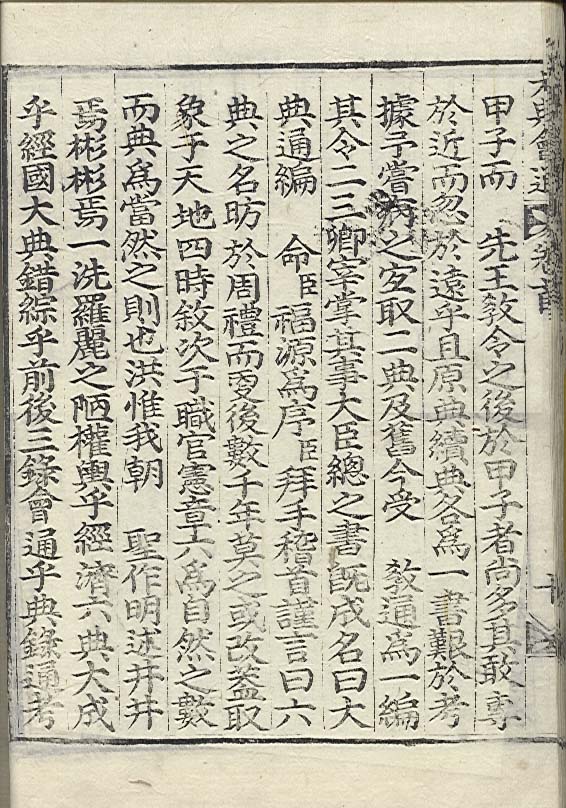 大典會通 卷首 十
甲子而 先王敎令之後於甲子者尚多其敢專
於近而忽於遠乎且原典續典各爲一書艱於考
據予嘗病之宜取二典及舊今受 敎通爲一編
其令二三卿宰掌其事大臣總之書旣成名曰大
典通編 命臣福源爲序臣拜手稽首謹言曰六
典之名昉於周禮而更後數千年莫之或改蓋取
象于天地四時敘次于職官憲章六爲自然之數
而典爲當然之則也洪惟我朝 聖作明述井井
焉彬彬焉一洗羅麗之陋權輿乎經濟六典大成
乎經國大典錯綜乎前後三錄會通乎典錄通考